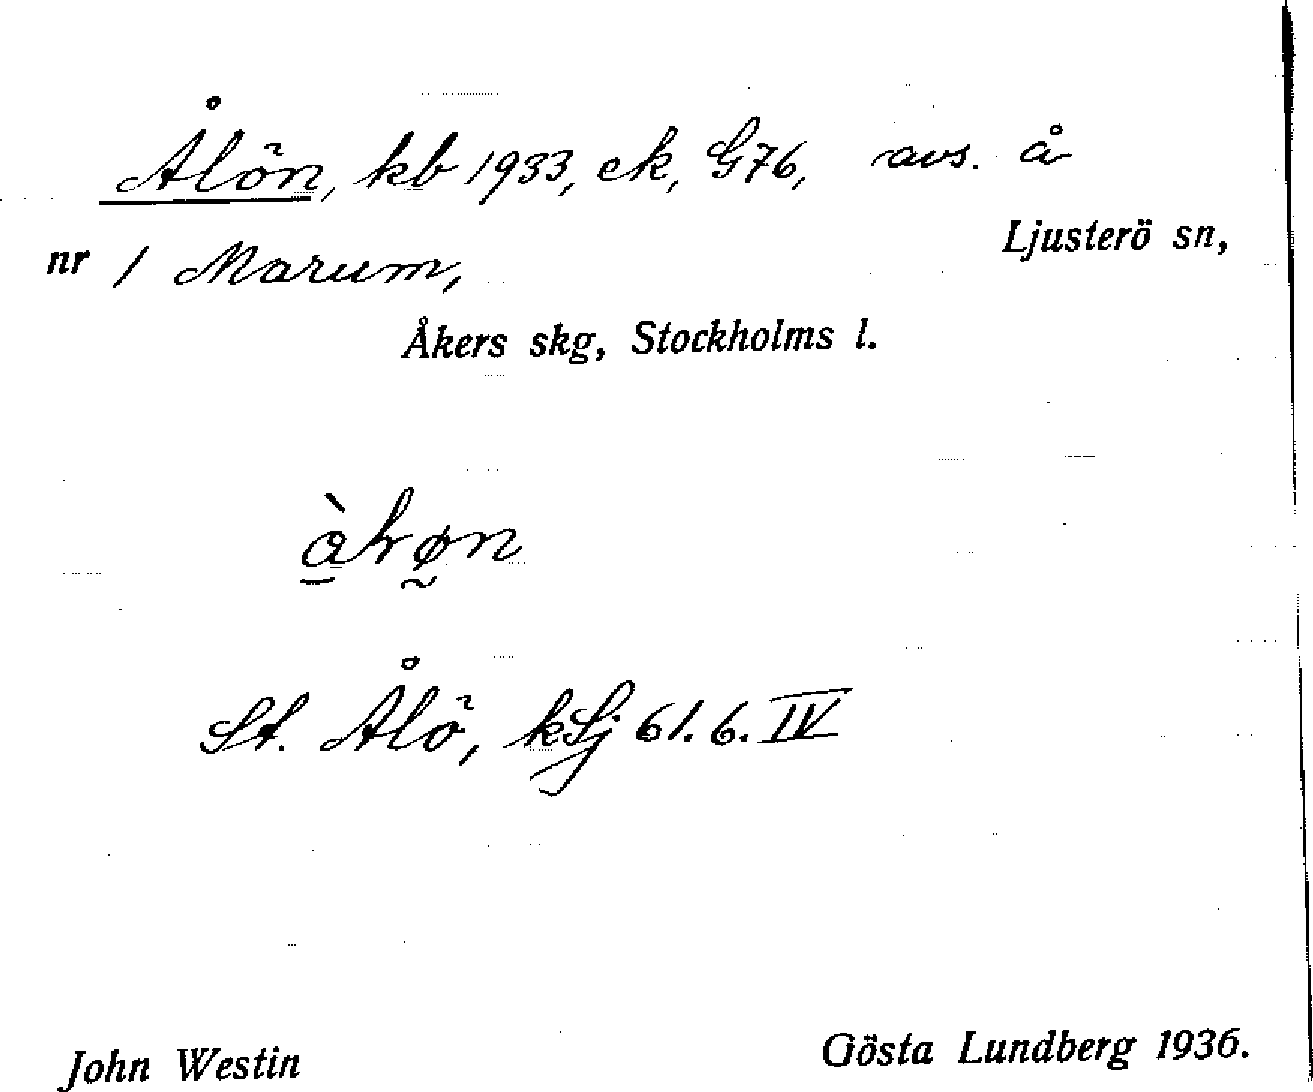 Ålön, kb 1933, ek, G76, avs. å
Ljusterö sn,
nr 1 Marum,
Åkers skg, Stockholms l.
St. Ålö, kSj 61.6.IV
John Westin
Gösta Lundberg 1936.